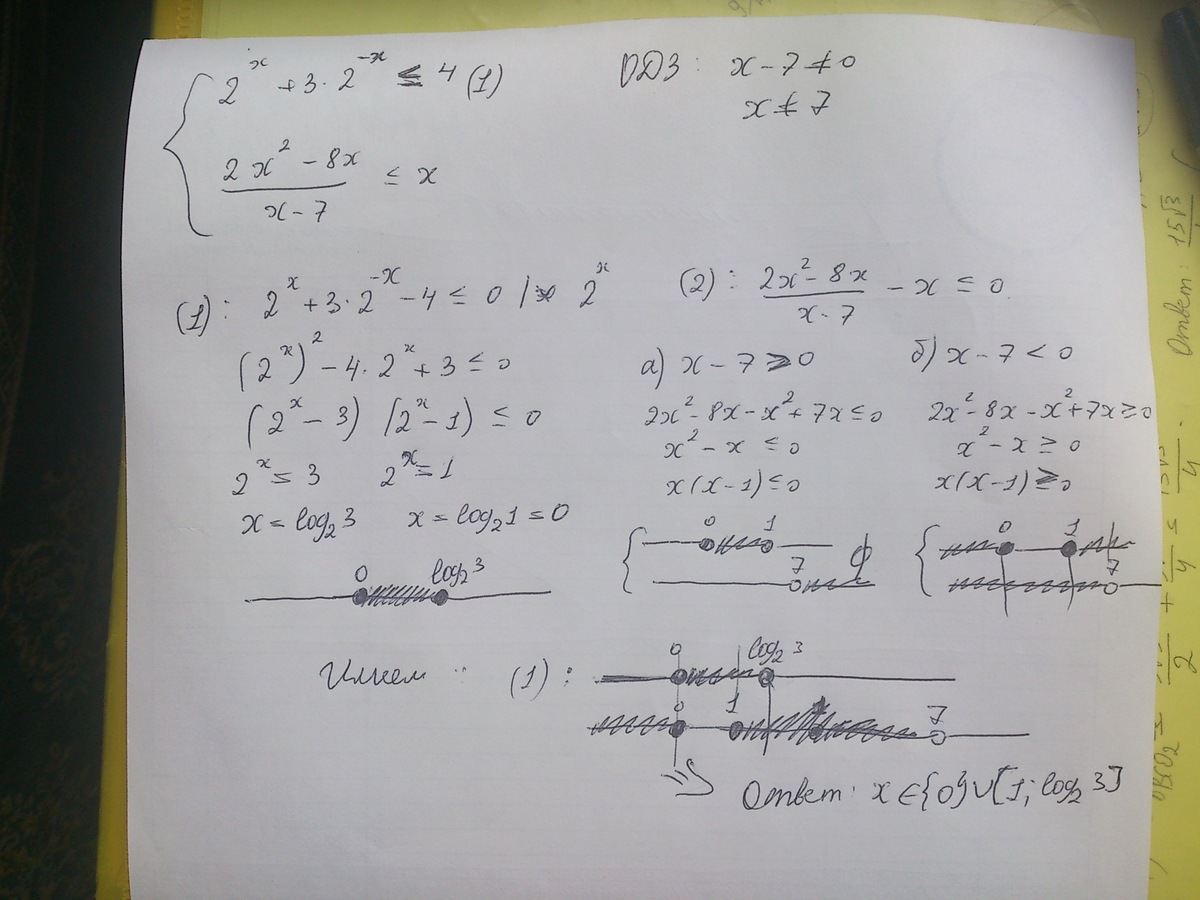 2^x + 3·2^-x ≤ 4 (1)
ОДЗ: x - 7 ≠ 0
x ≠ 7
(2x² - 8x)/(x - 7) ≤ x
(1): 2^x + 3·2^-x - 4 ≤ 0 | 2^x
(2x)² - 4·2^x + 3 ≤ 0
(2^x - 3) (2^x - 1) ≤ 0
2^x = 3 2^x = 1
x = log₂3 x = log₂1 = 0
0 log₂3
(2): (2x² - 8x)/(x - 7) - x ≤ 0
а) x - 7 > 0
2x² - 8x - x² + 7x ≤ 0
x² - x ≤ 0
x(x - 1) ≤ 0
0 1
7 ∅
б) x - 7 < 0
2x² - 8x - x² + 7x ≥ 0
x² - x ≥ 0
x(x - 1) ≥ 0
0 1
7
Имеем : (1):
0 log₂3
0 1 7
=> Ответ: x ∈ {0} ∪ [1; log₂3]
15√3
Ответ: